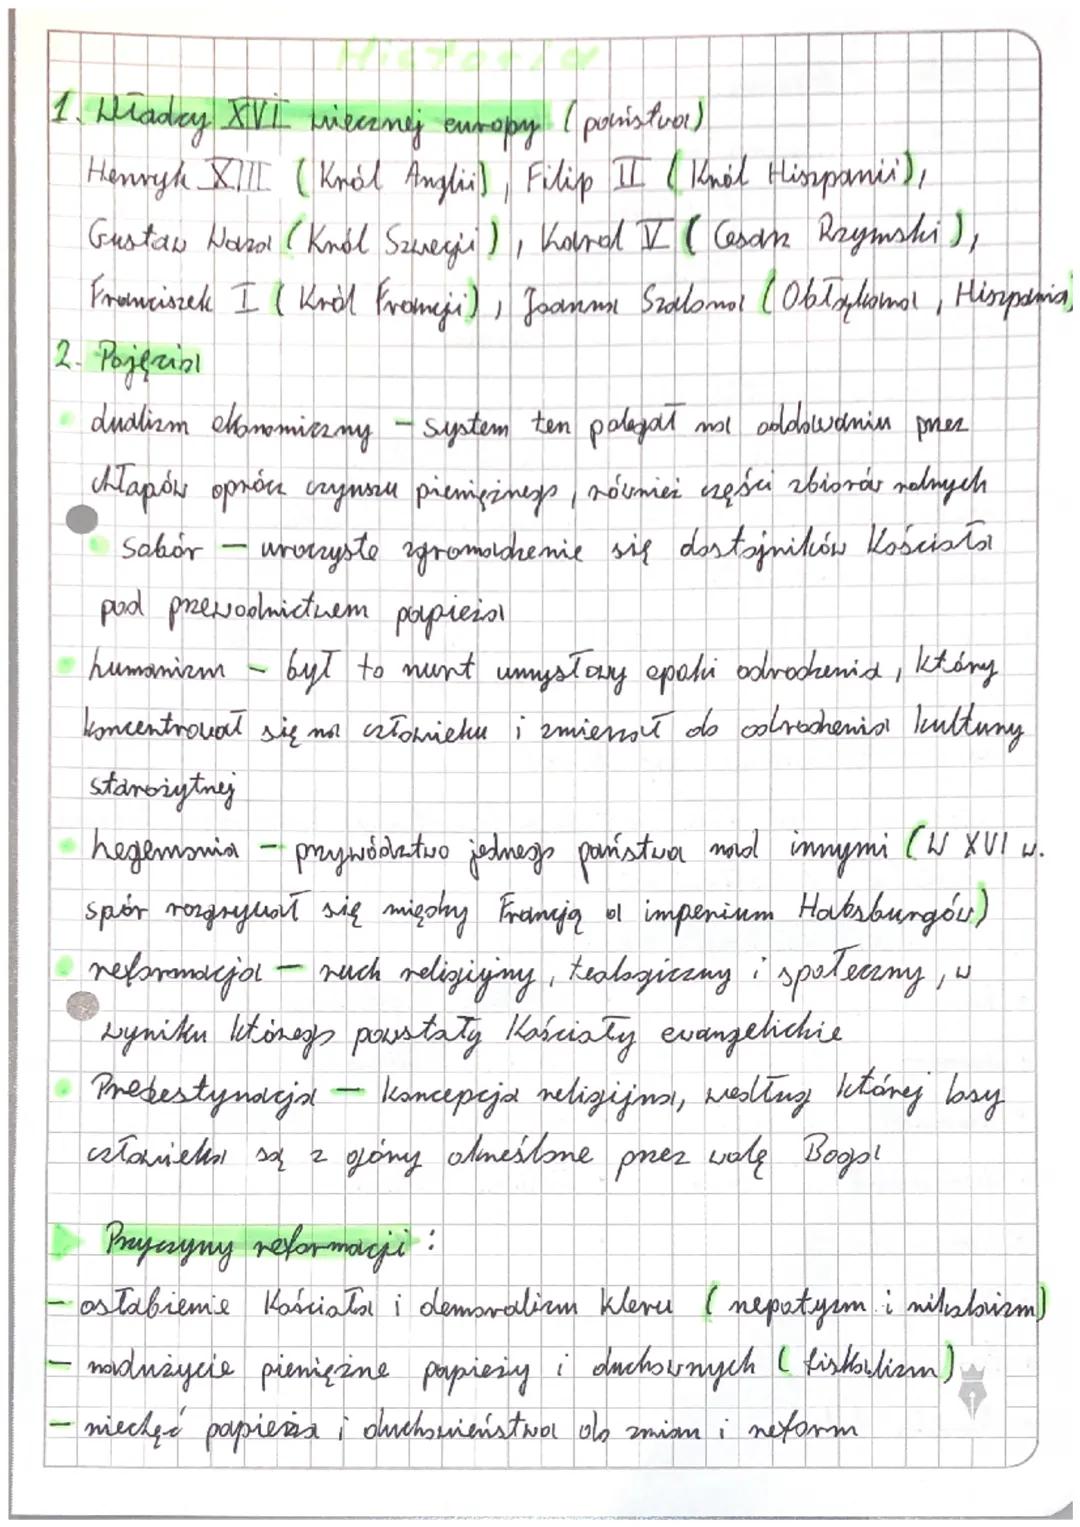 Historia
1. Władcy XVI wiecznej europy (państwa)
Henryk XIII (Król Anglii), Filip II (Król Hiszpanii),
Gustaw Waza (Król Szwecji), Karol V (Cesarz Rzymski),
Franciszek I (Król Francji), Joanna Szalona (Obłąkana, Hiszpania)
2. Pojęcia
dualizm ekonomiczny – system ten polegał na oddawaniu przez
chłopów oprócz czynszu pieniężnego, również części zbiorów rolnych
Sobór – uroczyste zgromadzenie się dostojników Kościoła
pod przewodnictwem papieża
humanizm – był to nurt umysłowy epoki odrodzenia, który
koncentrował się na człowieku i zmierzał do odrodzenia kultury
starożytnej
hegemonia – przywództwo jednego państwa nad innymi (W XVI w.
spór rozgrywał się między Francją a imperium Habsburgów)
reformacja – ruch religijny, teologiczny i społeczny, w
wyniku którego powstały Kościoły ewangelickie
Predestynacja – koncepcja religijna, według której losy
człowieka są z góry określone przez wolę Boga
Przyczyny reformacji:
– osłabienie Kościoła i demoralizm kleru (nepotyzm i nikolaizm)
– nadużycie pieniężne papieży i duchownych (fiskalizm)
– niechęć papieża i duchowieństwa do zmian i reform